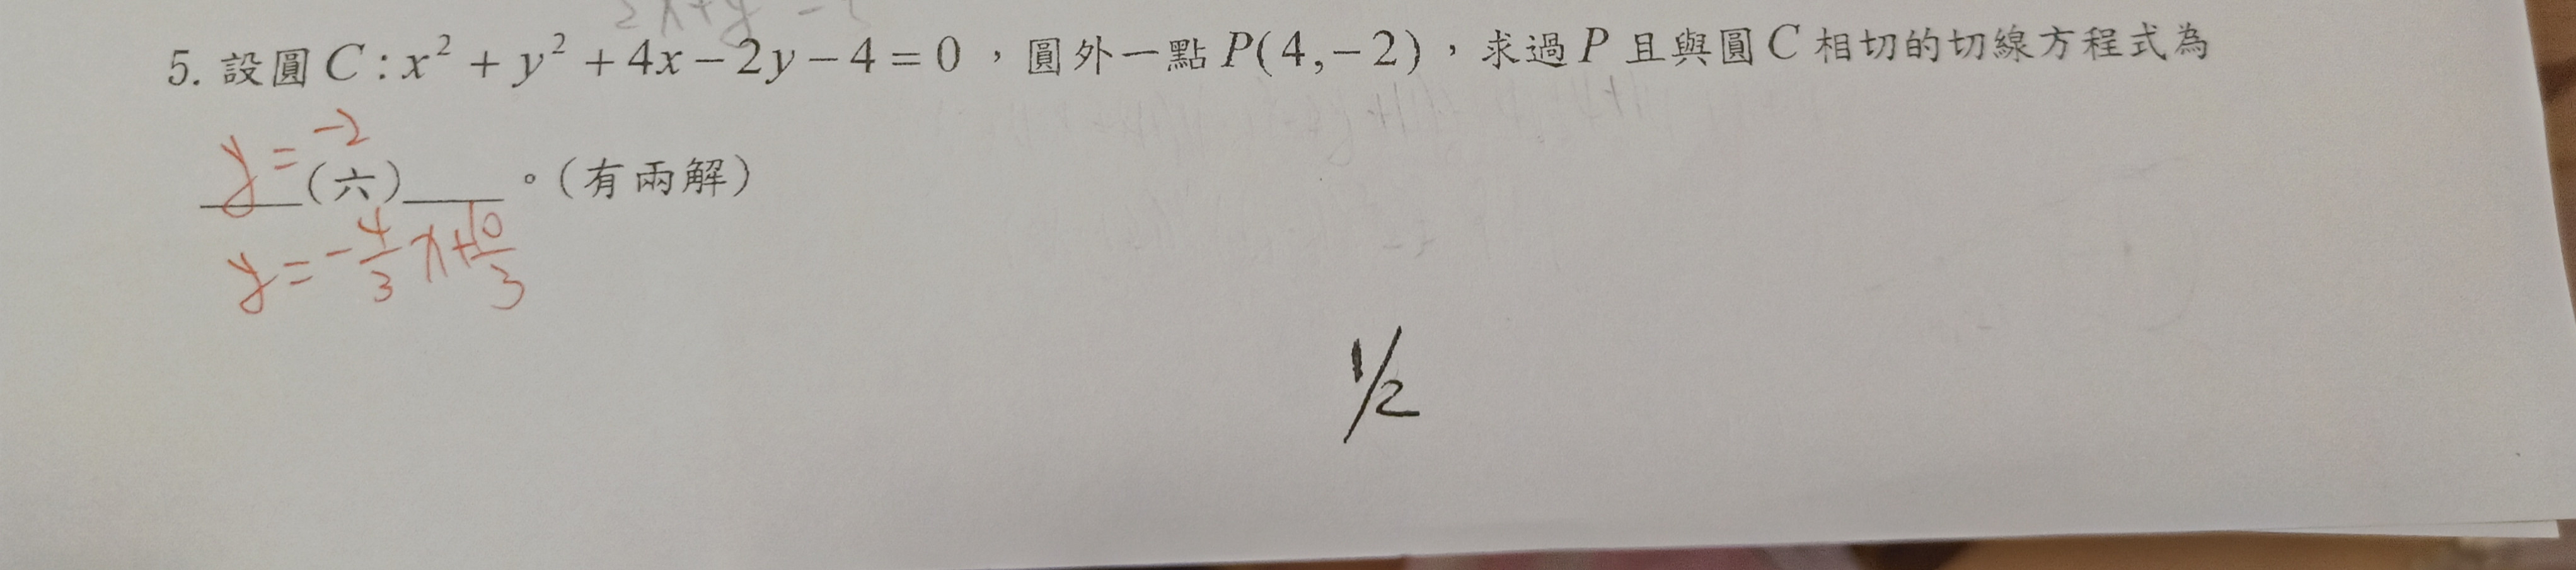 5. 設圓 C : x² + y² + 4x − 2y − 4 = 0 ，圓外一點 P(4,−2)，求過 P 且與圓 C 相切的切線方程式為
y = −2
(六) 。(有兩解)
y = −4/3 x + 10/3
1/2